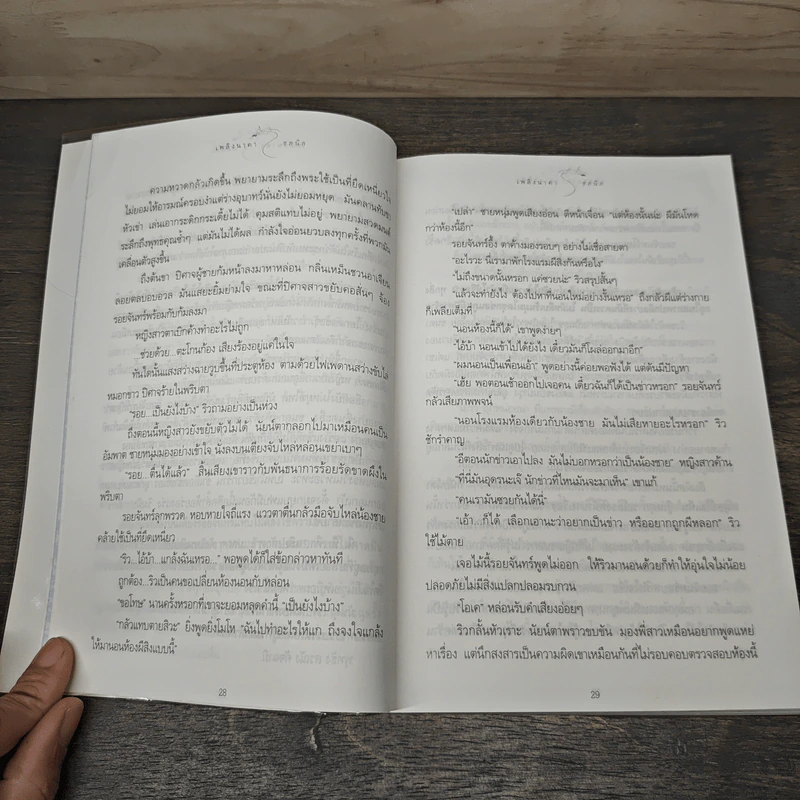 เพลิงนาคา
รตนีล
ความหวาดกลัวเกิดขึ้น พยายามระลึกถึงพระใช้เป็นที่ยึดเหนี่ยวใจ
ไม่ยอมให้อารมณ์ครอบงำแต่ร่างอุบาทว์นั่นยังไม่ยอมหยุด มันคลานคืบเข้า
หัวเข่า เล่นเอากระดิกกระเดี้ยไม่ได้ คุมสติแทบไม่อยู่ พยายามสวดมนต์
ระลึกถึงพุทธคุณซ้ำๆ แต่มันไม่ได้ผล กำลังใจอ่อนยวบลงทุกครั้งที่พวกมัน
เคลื่อนตัวสูงขึ้น
ถึงต้นขา ปีศาจผู้ชายก้มหน้าลงมาหาหล่อน กลิ่นเหม็นชวนอาเจียน
ลอยตลบอบอวล มันแสยะยิ้มย่ามใจ ขณะที่ปีศาจสาวขยับคอสั้นๆ จ้อง
รอยจันทร์พร้อมกับก้มลงมา
หญิงสาวตาเบิกค้างทำอะไรไม่ถูก
ช่วยด้วย...ตะโกนก้อง เสียงร้องอยู่แค่ในใจ
ทันใดนั้นแสงสว่างฉายวูบขึ้นที่ประตูห้อง ตามด้วยไฟเพดานสว่างขับไล่
หมอกขาว ปีศาจร้ายในพริบตา
“รอย...เป็นยังไงบ้าง” ริวถามอย่างเป็นห่วง
ถึงตอนนี้หญิงสาวยังขยับตัวไม่ได้ นัยน์ตากลอกไปมาเหมือนคนเป็น
อัมพาต ชายหนุ่มมองอย่างเข้าใจ นั่งลงบนเตียงจับไหล่หล่อนเขย่าเบาๆ
“รอย...ตื่นได้แล้ว” สิ้นเสียงเขาราวกับพันธนาการร้อยรัดขาดผึงใน
พริบตา
รอยจันทร์ลุกพรวด หอบหายใจถี่แรง แววตาตื่นกลัวมือจับไหล่น้องชาย
คล้ายใช้เป็นที่ยึดเหนี่ยว
“ริว...ไอ้บ้า...แกล้งฉันเหรอ...” พอพูดได้ก็ใส่ข้อกล่าวหาทันที
ถูกต้อง...ริวเป็นคนขอเปลี่ยนห้องนอนกับหล่อน
“ขอโทษ” นานครั้งหรอกที่เขาจะยอมหลุดคำนี้ “เป็นยังไงบ้าง”
“กลัวแทบตายสิวะ” ยิ่งพูดยิ่งโมโห “ฉันไปทำอะไรให้แก ถึงจงใจแกล้ง
ให้มานอนห้องผีสิงแบบนี้”
28
เพลิงนาคา
รตนีล
“เปล่า” ชายหนุ่มพูดเสียงอ่อน ตีหน้าเจื่อน “แต่ห้องนั้นน่ะ ผีมันโหด
กว่าห้องนี้อีก”
รอยจันทร์อึ้ง ตาค้างมองรอบๆ อย่างไม่เชื่อสายตา
“อะไรวะ นี่เรามาพักโรงแรมผีสิงกันหรือไง”
“ไม่ถึงขนาดนั้นหรอก แค่ซวยน่ะ” ริวสรุปสั้นๆ
“แล้วจะทำยังไง ต้องไปหาที่นอนใหม่อย่างงั้นเหรอ” ถึงกลัวผีแต่ร่างกาย
ก็เพลียเต็มที่
“นอนห้องนี้ก็ได้” เขาพูดง่ายๆ
“ไอ้บ้า นอนเข้าไปได้ยังไง เดี๋ยวมันก็โผล่ออกมาอีก”
“ผมนอนเป็นเพื่อนเอ้า” พูดอย่างนี้ค่อยพอฟังได้ แต่ดันมีปัญหา
“เฮ้ย พอตอนเช้าออกไปเจอคน เดี๋ยวฉันก็ได้เป็นข่าวหรอก” รอยจันทร์
กลัวเสียภาพพจน์
“นอนโรงแรมห้องเดียวกับน้องชาย มันไม่เสียหายอะไรหรอก” ริว
ชักรำคาญ
“อีตอนนักข่าวเอาไปลง มันไม่บอกหรอกว่าเป็นน้องชาย” หญิงสาวค้าน
“ที่นี่มันอุดรนะเจ๊ นักข่าวที่ไหนมันจะมาเห็น” เขาแก้
“คนเรามันซวยกันได้นี่”
“เอ้า...ก็ได้ เลือกเอานะว่าอยากเป็นข่าว หรืออยากถูกผีหลอก” ริว
ใช้ไม้ตาย
เจอไม้นี้รอยจันทร์พูดไม่ออก ให้ริวมานอนด้วยก็ทำให้อุ่นใจไม่น้อย
ปลอดภัยไม่มีสิ่งแปลกปลอมรบกวน
“โอเค” หล่อนรับคำเสียงอ่อยๆ
ริวกลั้นหัวเราะ นัยน์ตาพราวขบขัน มองพี่สาวเหมือนอยากพูดแหย่
หาเรื่อง แต่นึกสงสารเป็นความผิดเขาเหมือนกันที่ไม่รอบคอบตรวจสอบห้องนี้
29